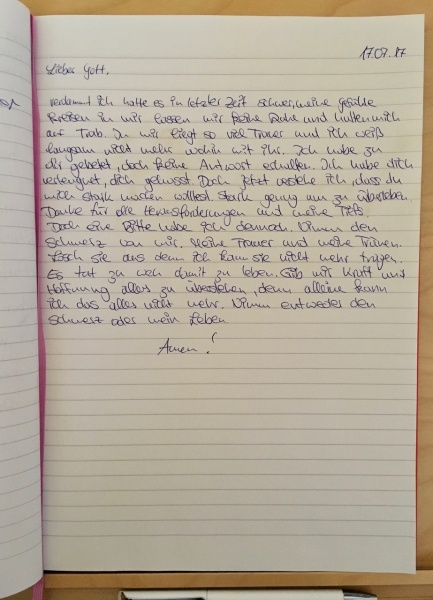 17.09.17
Lieber Gott,
verdammt ich hatte es in letzter Zeit schwer, meine Gefühle
kreisen in mir lassen mir keine Ruhe und halten mich
auf Trab. In mir liegt so viel Trauer und ich weiß
langsam nicht mehr wohin mit ihr. Ich habe zu
dir gebetet, doch keine Antwort erhalten. Ich habe dich
verleugnet, dich gehasst. Doch jetzt verstehe ich, dass du
mich stark machen wolltest. Stark genug um zu überleben.
Danke für alle Herausforderungen und meine Tiefs.
Doch eine Bitte habe ich dennoch. Nimm den
Schmerz von mir. Meine Trauer und meine Tränen.
Lösch sie aus denn ich kann sie nicht mehr tragen.
Es tat zu weh damit zu leben. Gib mir Kraft und
Hoffnung alles zu überstehen, denn alleine kann
ich das alles nicht mehr. Nimm entweder den
Schmerz oder mein Leben
Amen!